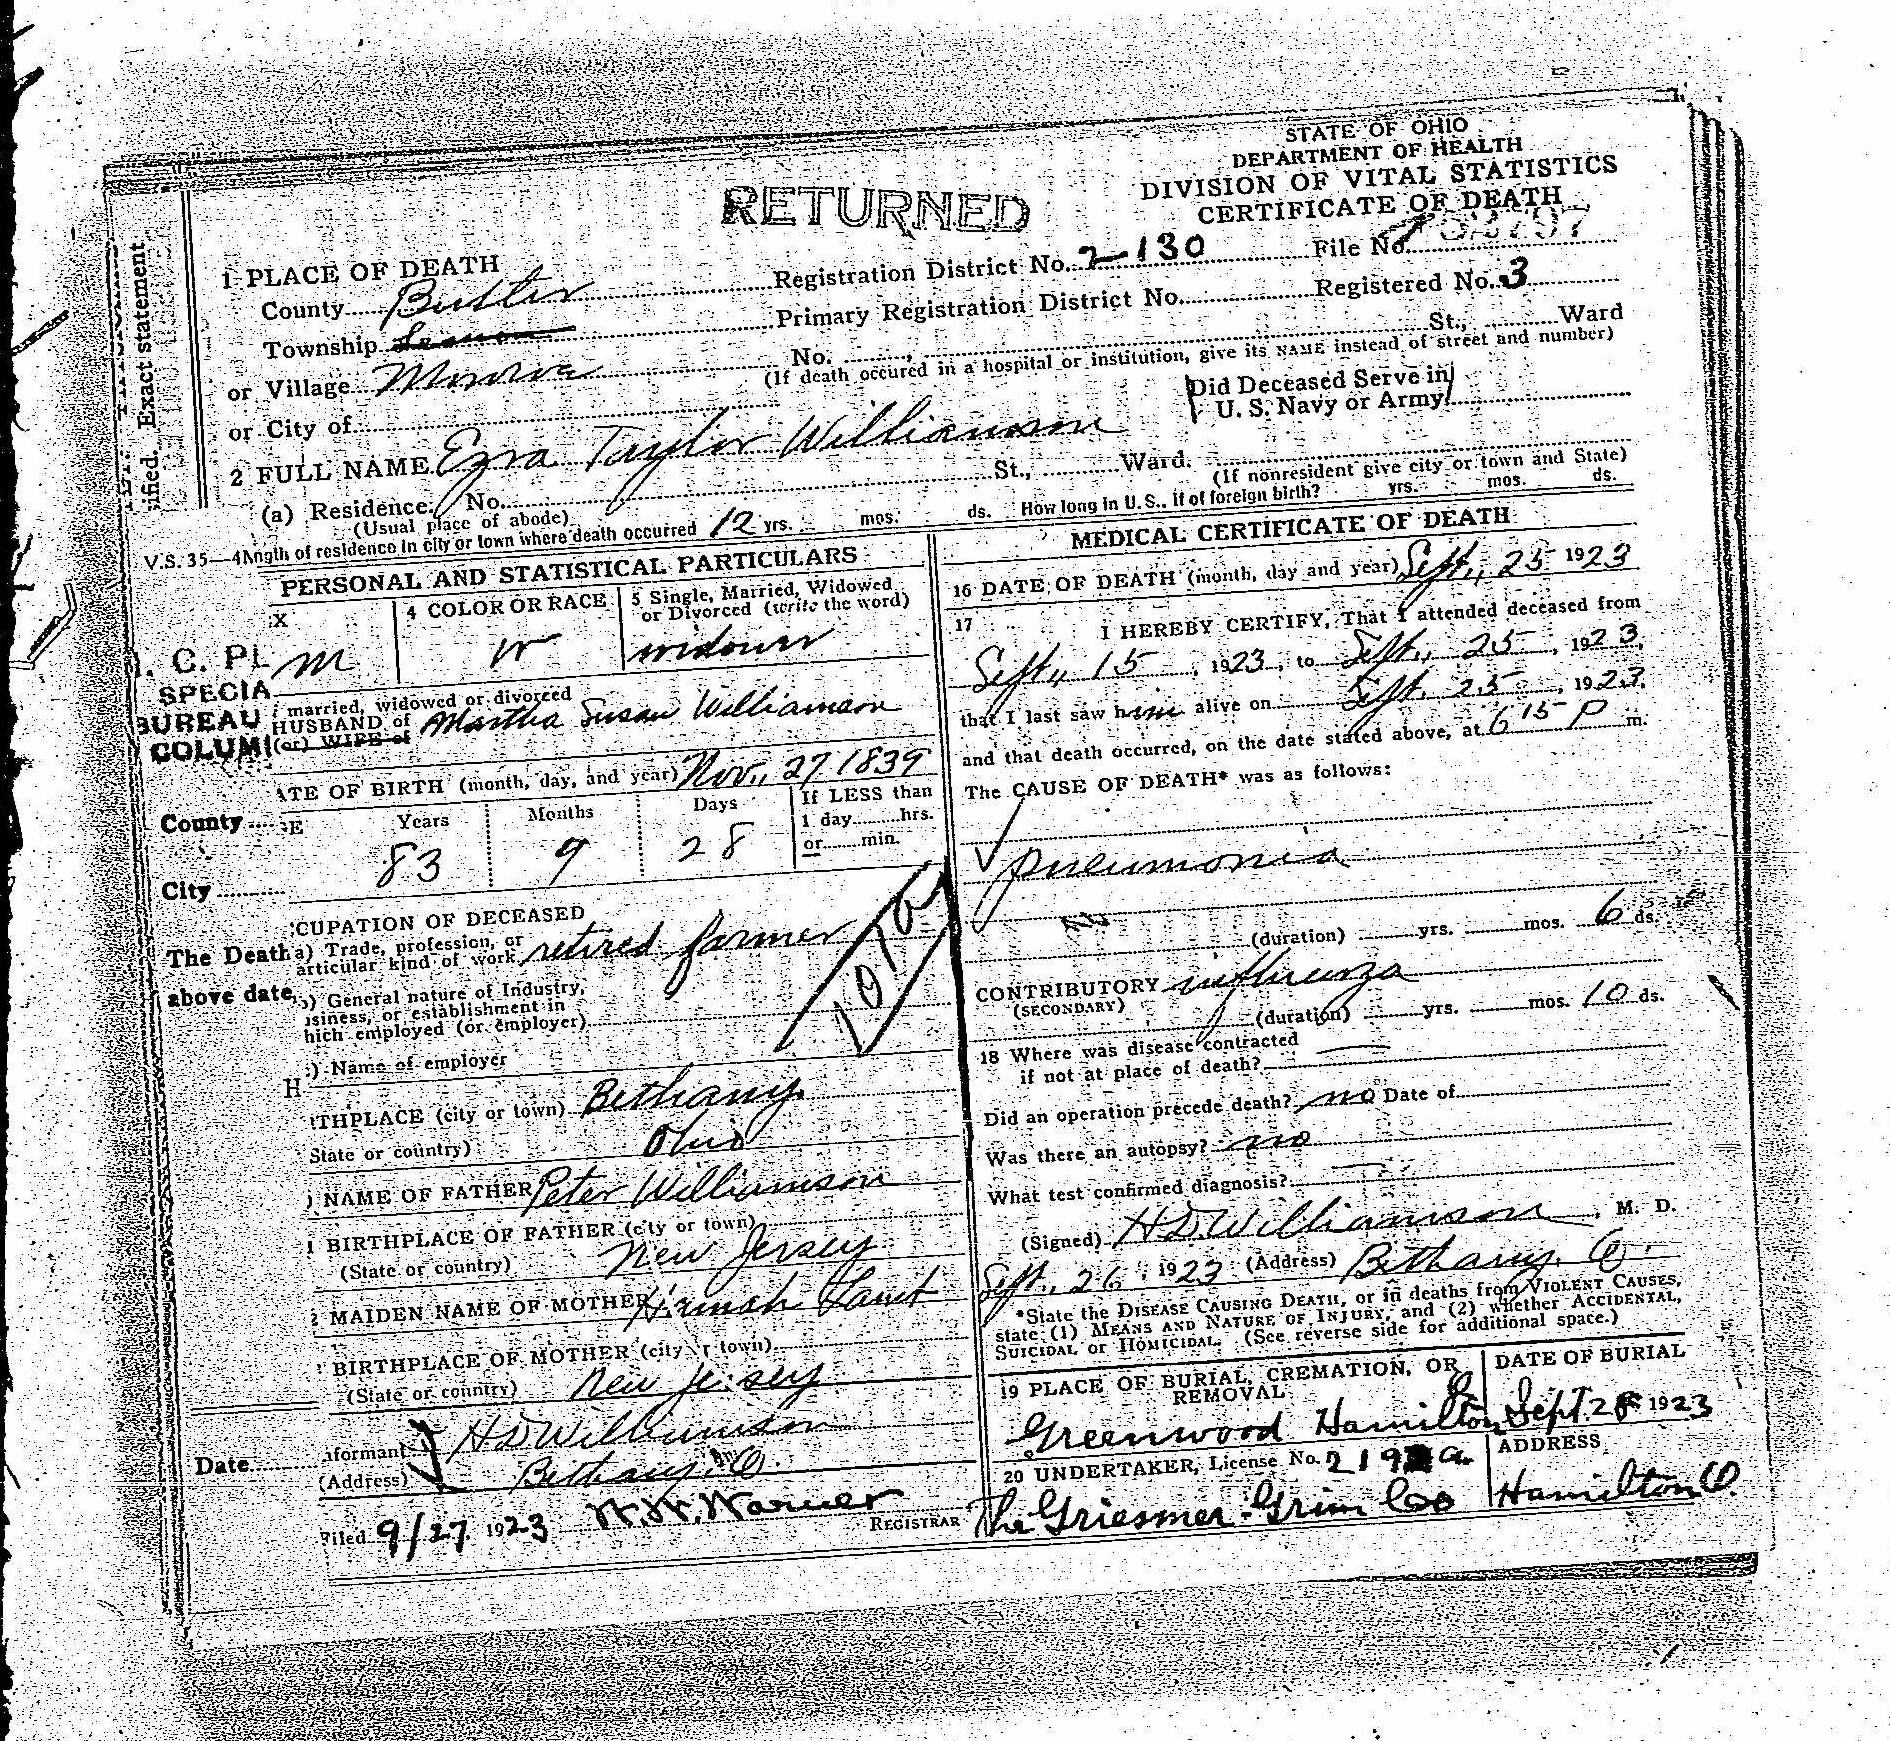 STATE OF OHIO
DEPARTMENT OF HEALTH
DIVISION OF VITAL STATISTICS
CERTIFICATE OF DEATH
RETURNED
1 PLACE OF DEATH
County Butler
Registration District No. 2-130 File No.
Township
Primary Registration District No. Registered No. 3
or Village Monroe
No. St., Ward
(If death occured in a hospital or institution, give its NAME instead of street and number)
or City of
Did Deceased Serve in
U. S. Navy or Army
2 FULL NAME Ezra Taylor Williamson
(a) Residence. No. St., Ward.
(Usual place of abode) (If nonresident give city or town and State)
V.S. 35—4 ngth of residence in city or town where death occurred 12 yrs. mos. ds. How long in U. S., if of foreign birth? yrs. mos. ds.
ified. Exact statement
PERSONAL AND STATISTICAL PARTICULARS
X
4 COLOR OR RACE
5 Single, Married, Widowed
or Divorced (write the word)
m
w
widower
. C. PL
SPECIA
BUREAU
COLUM
married, widowed or divorced
HUSBAND of
(or) WIFE of
Martha Susan Williamson
ATE OF BIRTH (month, day, and year) Nov., 27 1839
County E Years Months Days If LESS than
1 day hrs.
or min.
83 9 28
City
CUPATION OF DECEASED
The Death a) Trade, profession, or
articular kind of work retired farmer
above date, ) General nature of Industry,
siness, or establishment in
hich employed (or employer)
) Name of employer
H
THPLACE (city or town) Bethany.
State or country) Ohio
) NAME OF FATHER Peter Williamson
1 BIRTHPLACE OF FATHER (city or town)
(State or country) New Jersey
2 MAIDEN NAME OF MOTHER
BIRTHPLACE OF MOTHER (city r town)
(State or country) New Jersey
nformant HD Williamson
Date (Address) Bethany, O.
Filed 9/27 1923 REGISTRAR
MEDICAL CERTIFICATE OF DEATH
16 DATE OF DEATH (month, day and year) Sept., 25 1923
17 I HEREBY CERTIFY, That I attended deceased from
Sept., 15, 1923, to Sept., 25, 1923,
that I last saw him alive on Sept. 25, 1923,
and that death occurred, on the date stated above, at 6 15 P m.
The CAUSE OF DEATH* was as follows:
pneumonia
(duration) yrs. mos. 6 ds.
CONTRIBUTORY influenza
(SECONDARY)
(duration) yrs. mos. 10 ds.
18 Where was disease contracted
if not at place of death?
Did an operation precede death? no Date of
Was there an autopsy? no
What test confirmed diagnosis?
(Signed) HD. Williamson, M. D.
Sept., 26, 1923 (Address) Bethany, O.
*State the DISEASE CAUSING DEATH, or in deaths from VIOLENT CAUSES,
state (1) MEANS AND NATURE OF INJURY, and (2) whether ACCIDENTAL,
SUICIDAL or HOMICIDAL. (See reverse side for additional space.)
19 PLACE OF BURIAL, CREMATION, OR
REMOVAL
DATE OF BURIAL
Greenwood Hamilton Sept. 28 1923
20 UNDERTAKER, License No.
ADDRESS
The Griesmer-Grim Co Hamilton O